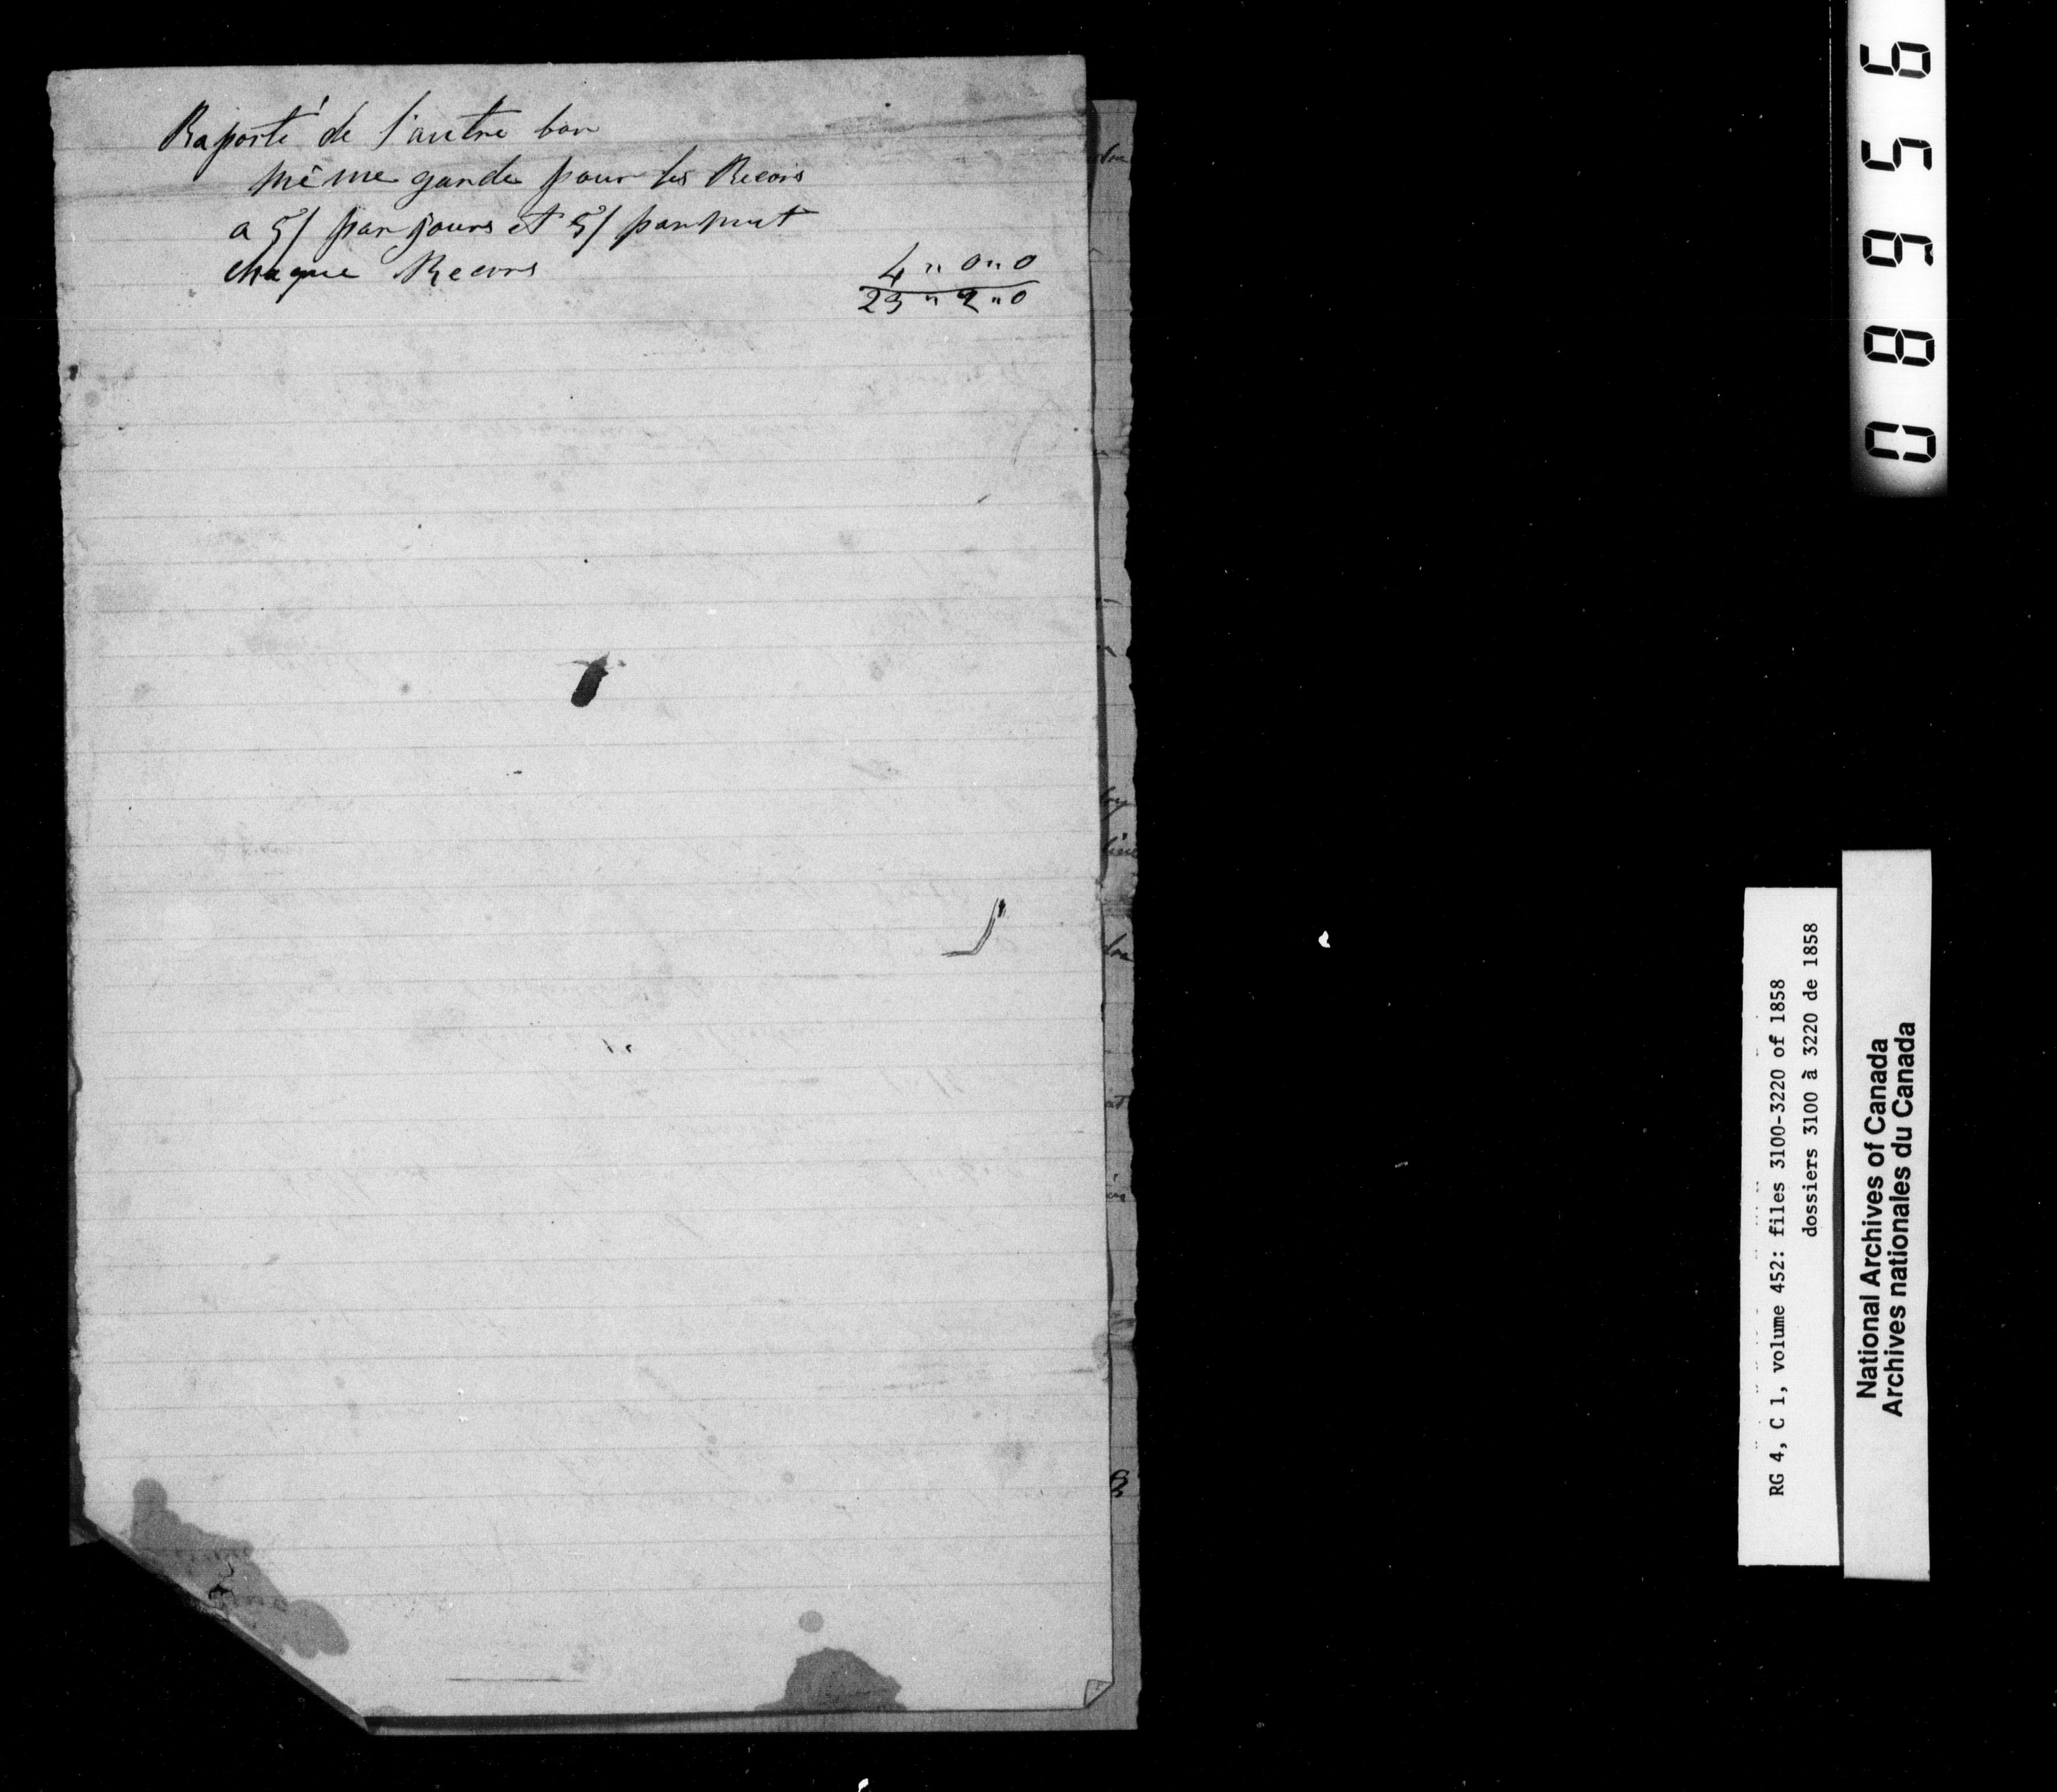 Raporté de l'autre bor
même garde pour les Recors
a 5/ par jours et 5/ par nuit
chaque Recors
4 " 0 " 0
23 " 2 " 0
08956
RG 4, C 1, volume 452: files 3100-3220 of 1858
dossiers 3100 à 3220 de 1858
National Archives of Canada
Archives nationales du Canada